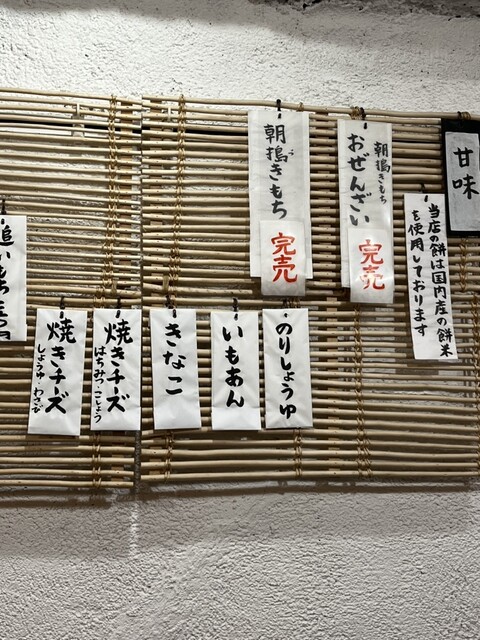 甘味
当店の餅は国内産の餅米
を使用しております
朝搗きもち
おぜんざい
完売
朝搗きもち
完売
のりしょうゆ
いもあん
きなこ
焼きチーズ
はちみつ・こしょう
焼きチーズ
しょうゆ・わさび